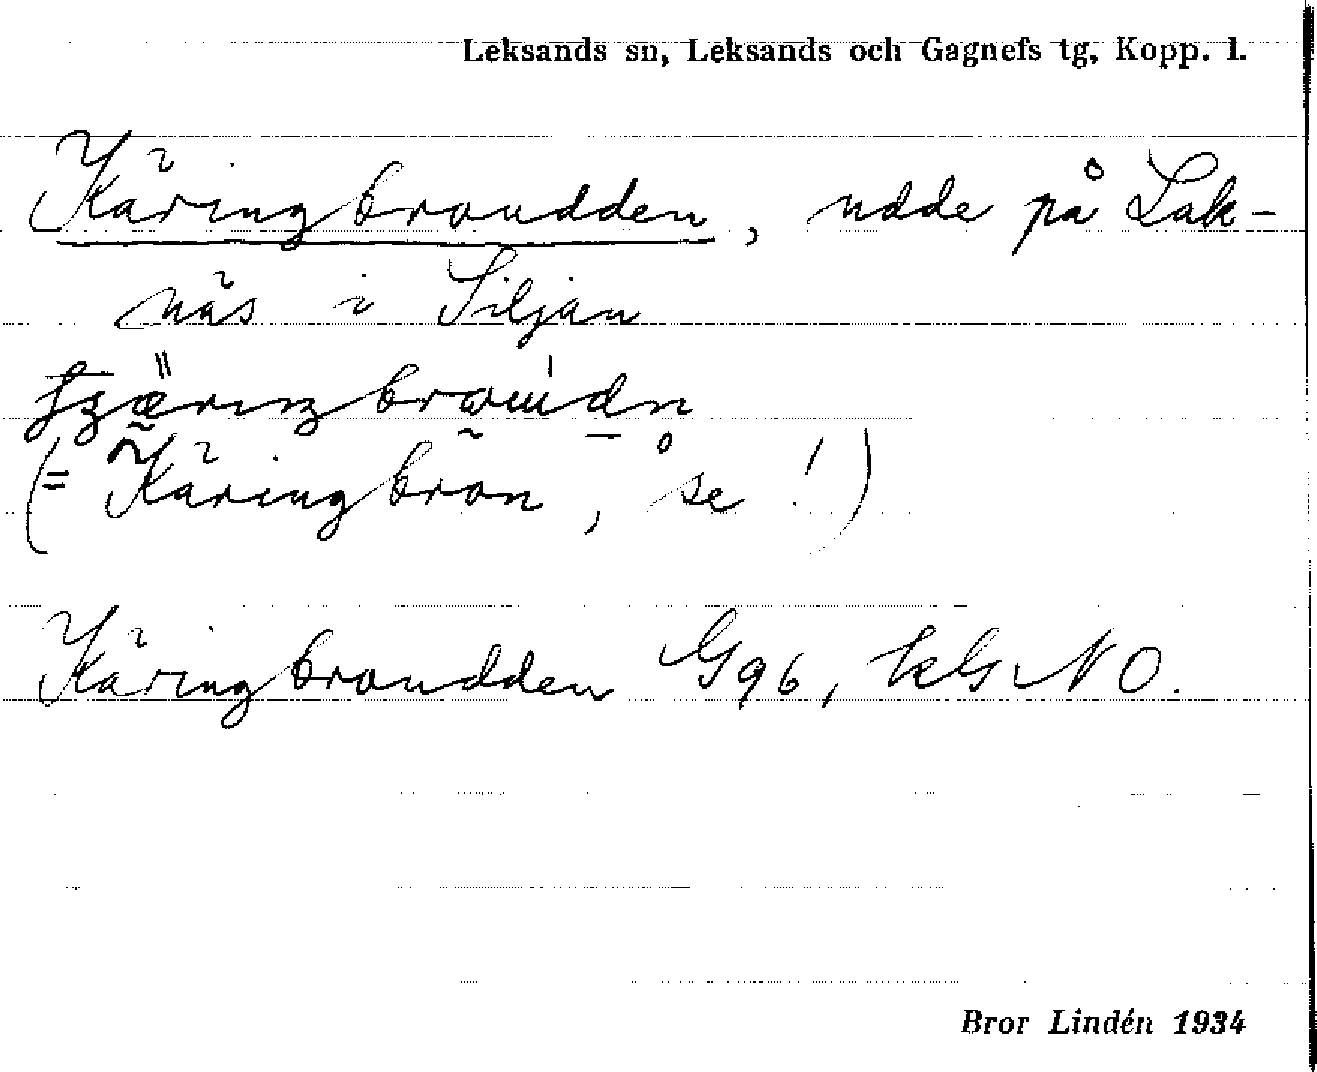 Leksands sn, Leksands och Gagnefs tg, Kopp. l.
Käringbroudden, udde på Lak-
näs i Siljan
(= Käringbron, se !)
Käringbroudden G96, NO.
Bror Lindén 1934